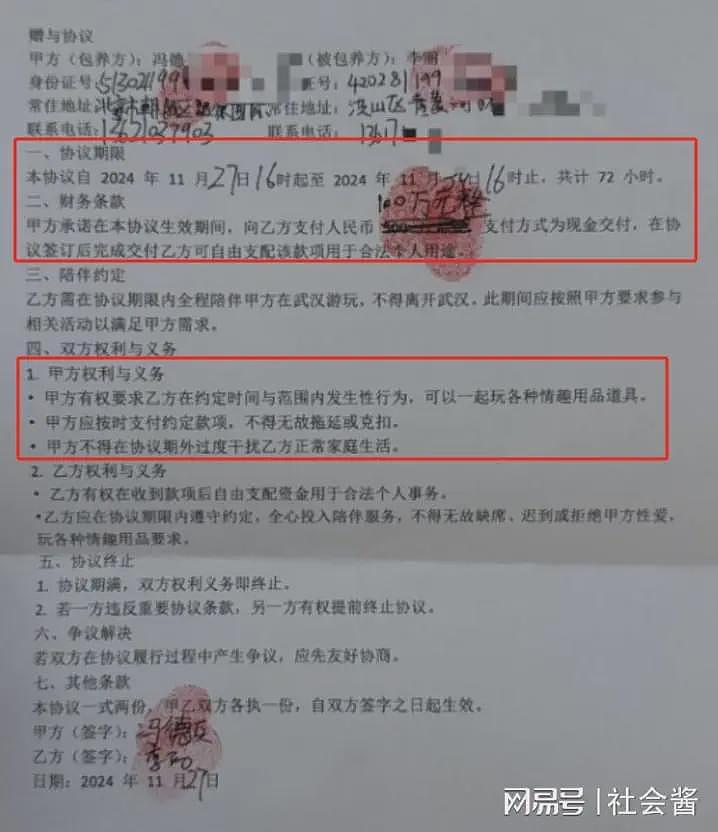 赠与协议
甲方（包养方）：冯德 （被包养方）：李丽
身份证号：513021199 证号：420281199
常住地址： 常住地址：洪山区
联系电话： 联系电话：1361
一、协议期限
本协议自 2024 年 11 月27日16时起至 2024 年 11 月 日16时止，共计 72 小时。
二、财务条款
100万元整
甲方承诺在本协议生效期间，向乙方支付人民币 支付方式为现金交付，在协
议签订后完成交付乙方可自由支配该款项用于合法个人用途。
三、陪伴约定
乙方需在协议期限内全程陪伴甲方在武汉游玩，不得离开武汉。此期间应按照甲方要求参与
相关活动以满足甲方需求。
四、双方权利与义务
1. 甲方权利与义务
• 甲方有权要求乙方在约定时间与范围内发生性行为，可以一起玩各种情趣用品道具。
• 甲方应按时支付约定款项，不得无故拖延或克扣。
• 甲方不得在协议期外过度干扰乙方正常家庭生活。
2. 乙方权利与义务
• 乙方有权在收到款项后自由支配资金用于合法个人事务。
•乙方应在协议期限内遵守约定，全心投入陪伴服务，不得无故缺席、迟到或拒绝甲方性爱，
玩各种情趣用品要求。
五、协议终止
1. 协议期满，双方权利义务即终止。
2. 若一方违反重要协议条款，另一方有权提前终止协议。
六、争议解决
若双方在协议履行过程中产生争议，应先友好协商。
七、其他条款
本协议一式两份，甲乙双方各执一份，自双方签字之日起生效。
甲方（签字）：冯德
乙方（签字）：李
日期：2024 年 11 月27日
网易号 | 社会酱